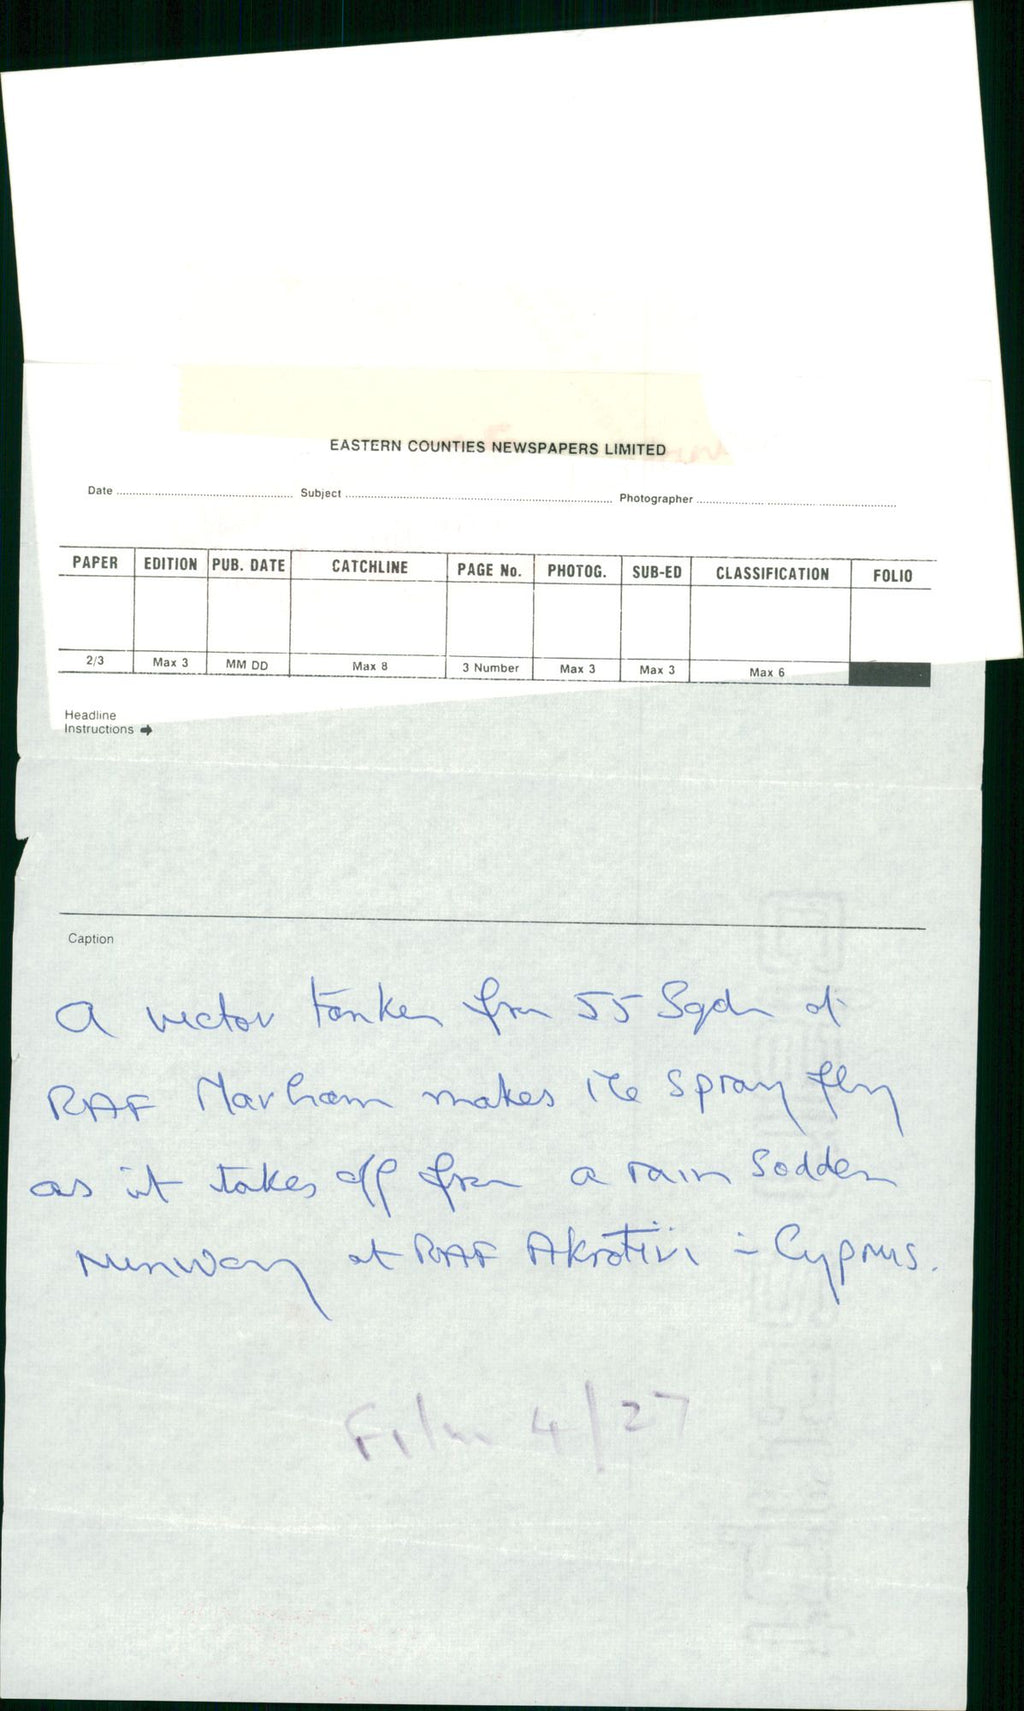 EASTERN COUNTIES NEWSPAPERS LIMITED
Date ........ Subject ........ Photographer ........
PAPER EDITION PUB. DATE CATCHLINE PAGE No. PHOTOG. SUB-ED CLASSIFICATION FOLIO
2/3 Max 3 MM DD Max 8 3 Number Max 3 Max 3 Max 6
Headline
Instructions ➔
Caption
A victor tanker from 55 Sqdn of
RAF Marham makes the spray fly
as it takes off from a rain sodden
runway at RAF Akrotiri - Cyprus.
Film 4/27